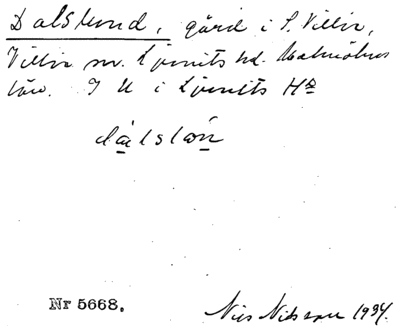 Dalslund, gård i S. Villie,
Villie sn. Ljunits hd. Malmöhus
län. I U i Ljunits Hd
Nr 5668. Nils Nilsson 1934.